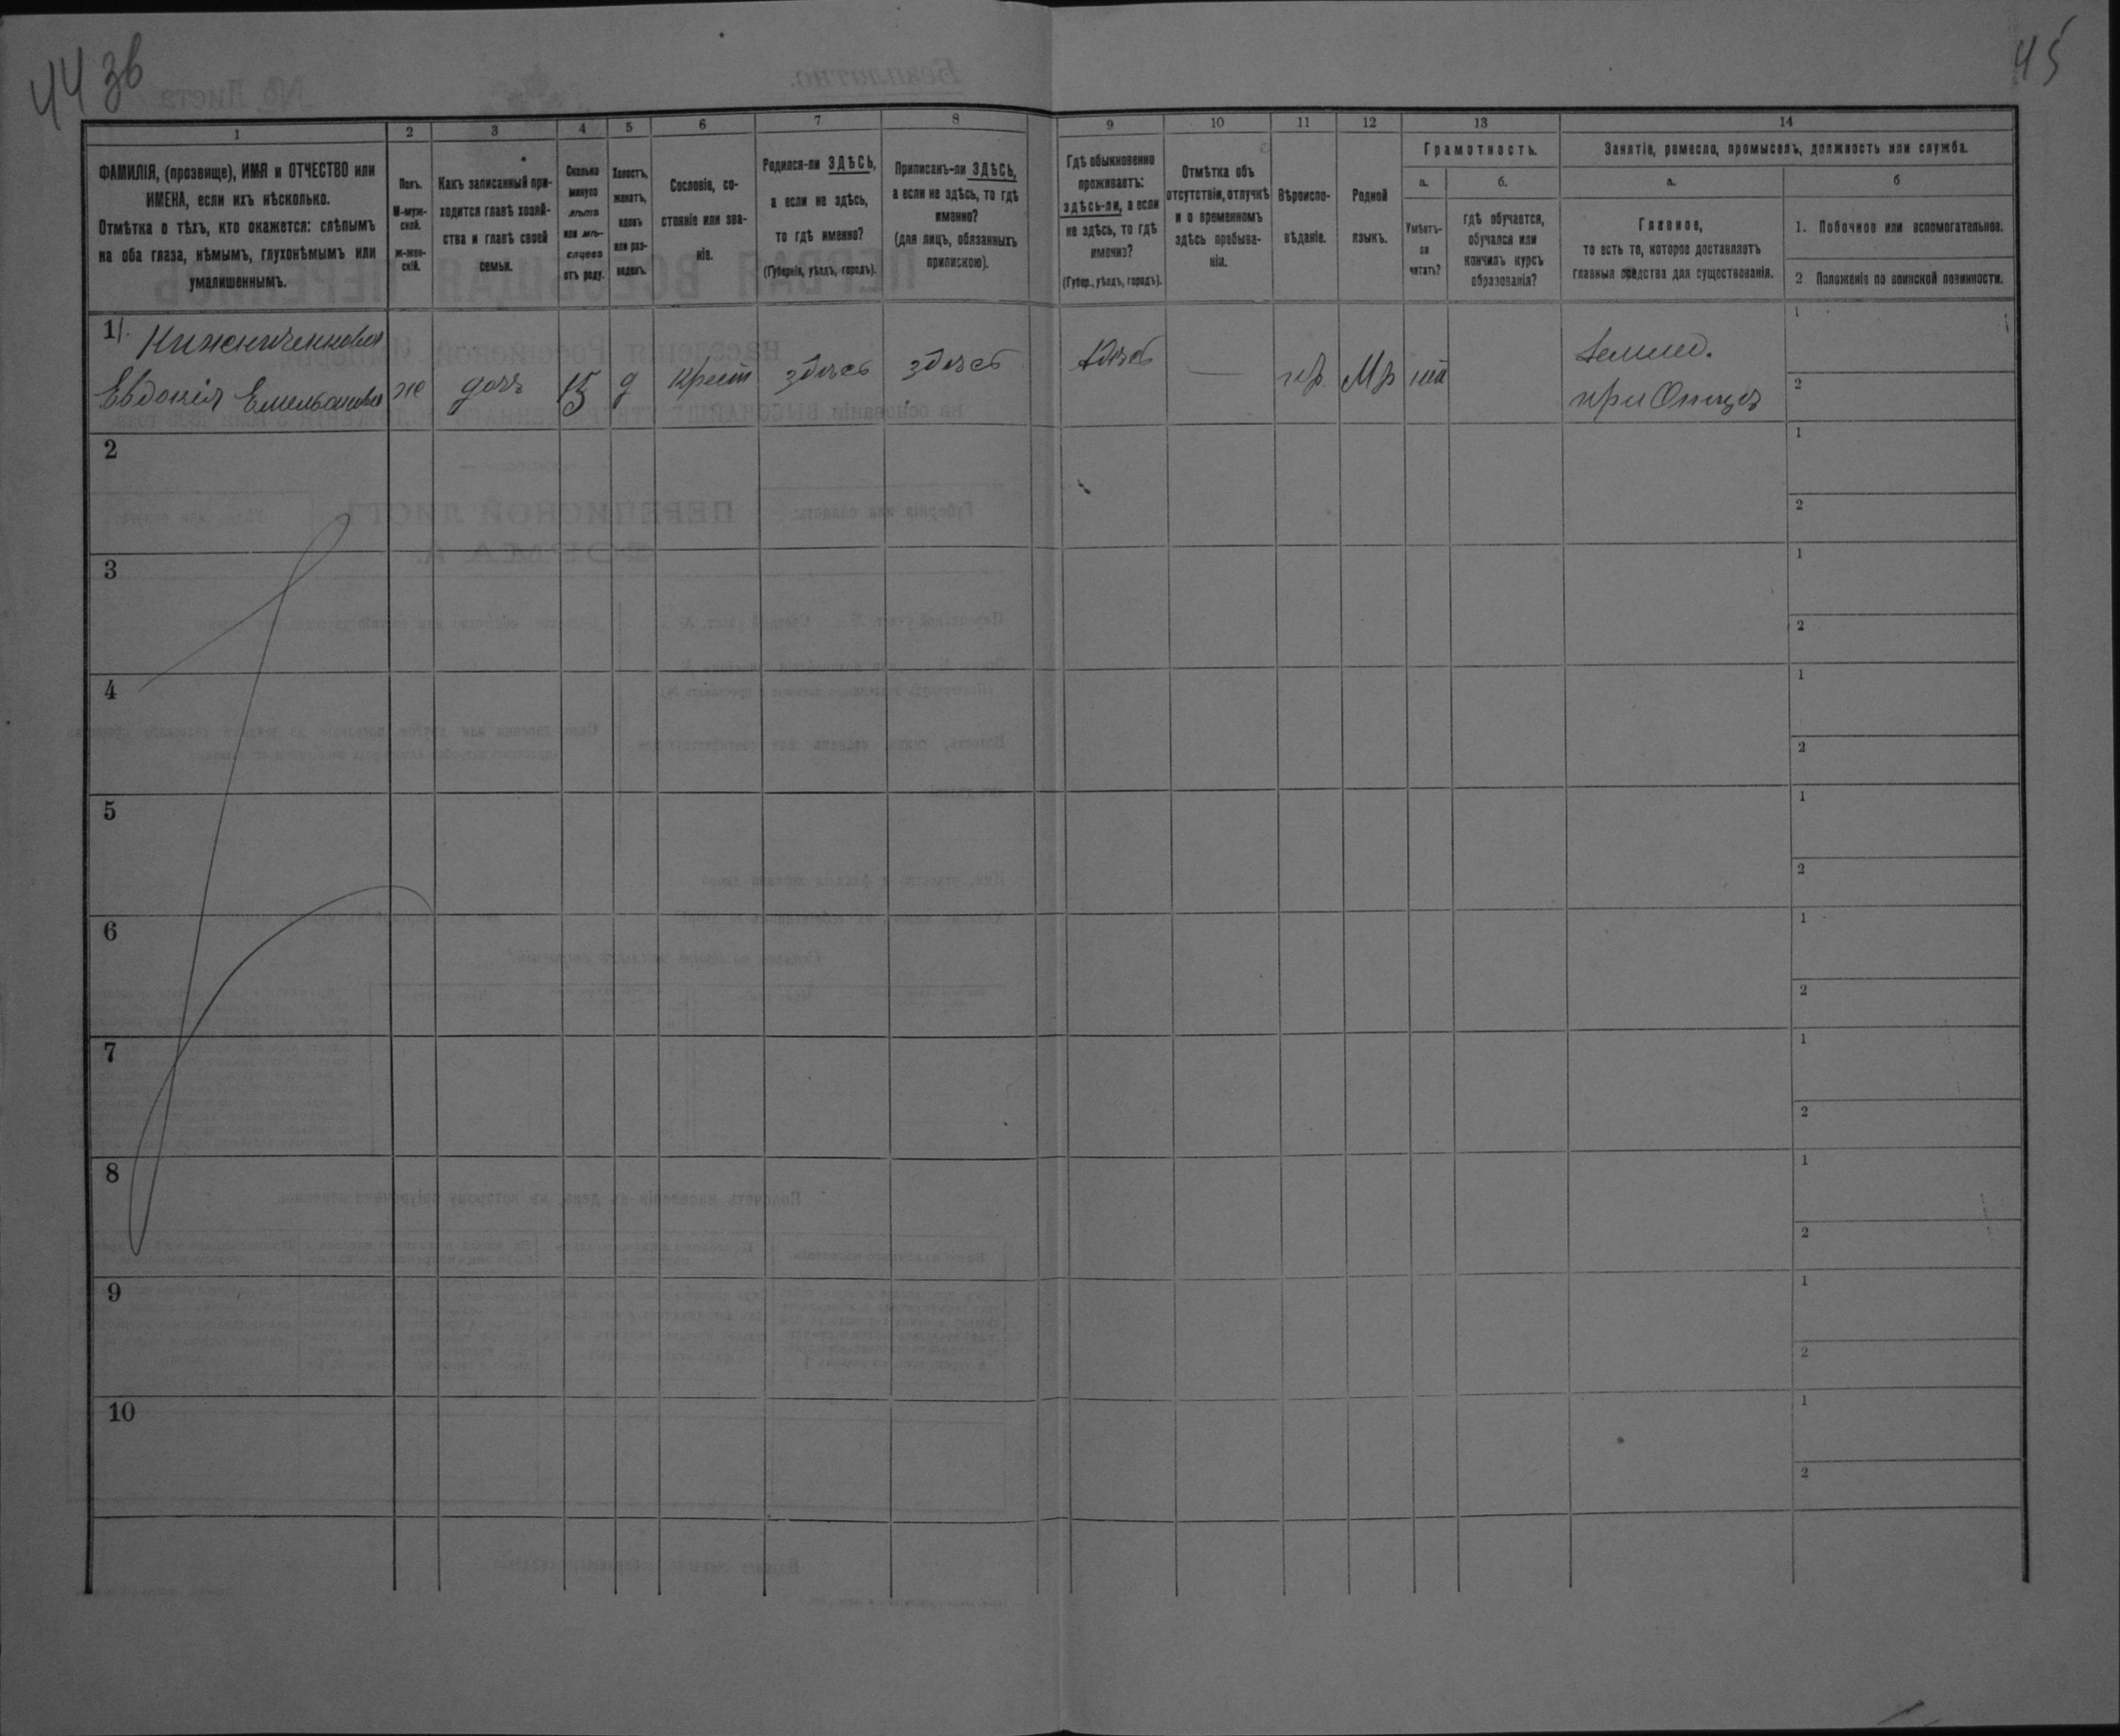 44 зв
45
1
2
3
4
5
6
7
8
9
10
11
12
13
14
ФАМИЛІЯ, (прозвище), ИМЯ и ОТЧЕСТВО или
ИМЕНА, если ихъ нѣсколько.
Отмѣтка о тѣхъ, кто окажется: слѣпымъ
на оба глаза, нѣмымъ, глухонѣмымъ или
умалишеннымъ.
Полъ.
М-муж-
ской.
ж-жен-
скій.
Какъ записанный при-
ходится главѣ хозяй-
ства и главѣ своей
семьи.
Сколько
минуло
лѣтъ
или мѣ-
сяцевъ
отъ роду.
Холостъ,
женатъ,
вдовъ
или раз-
веденъ.
Сословіе, со-
стояніе или зва-
ніе.
Родился-ли ЗДѢСЬ,
а если не здѣсь,
то гдѣ именно?
(Губернія, уѣздъ, городъ).
Приписанъ-ли ЗДѢСЬ,
а если не здѣсь, то гдѣ
именно?
(для лицъ, обязанныхъ
припискою).
Гдѣ обыкновенно
проживаетъ:
здѣсь-ли, а если
не здѣсь, то гдѣ
именно?
(Губер., уѣздъ, городъ).
Отмѣтка объ
отсутствіи, отлучкѣ
и о временномъ
здѣсь пребыва-
ніи.
Вѣроиспо-
вѣданіе.
Родной
языкъ.
Грамотность.
а.
Умѣетъ-
ли
читать?
б.
гдѣ обучается,
обучался или
кончилъ курсъ
образованія?
Занятіе, ремесло, промыселъ, должность или служба.
а.
Главное,
то есть то, которое доставляетъ
главныя средства для существованія.
б
1. Побочное или вспомогательное.
2 Положеніе по воинской повинности.
1
Евдокія Емельянова
ж
дочь
15
д
крест
здѣсь
здѣсь
здѣсь
—
пр.
Мр
Землед.
при Отцѣ
1
2
2
1
2
3
1
2
4
1
2
5
1
2
6
1
2
7
1
2
8
1
2
9
1
2
10
1
2